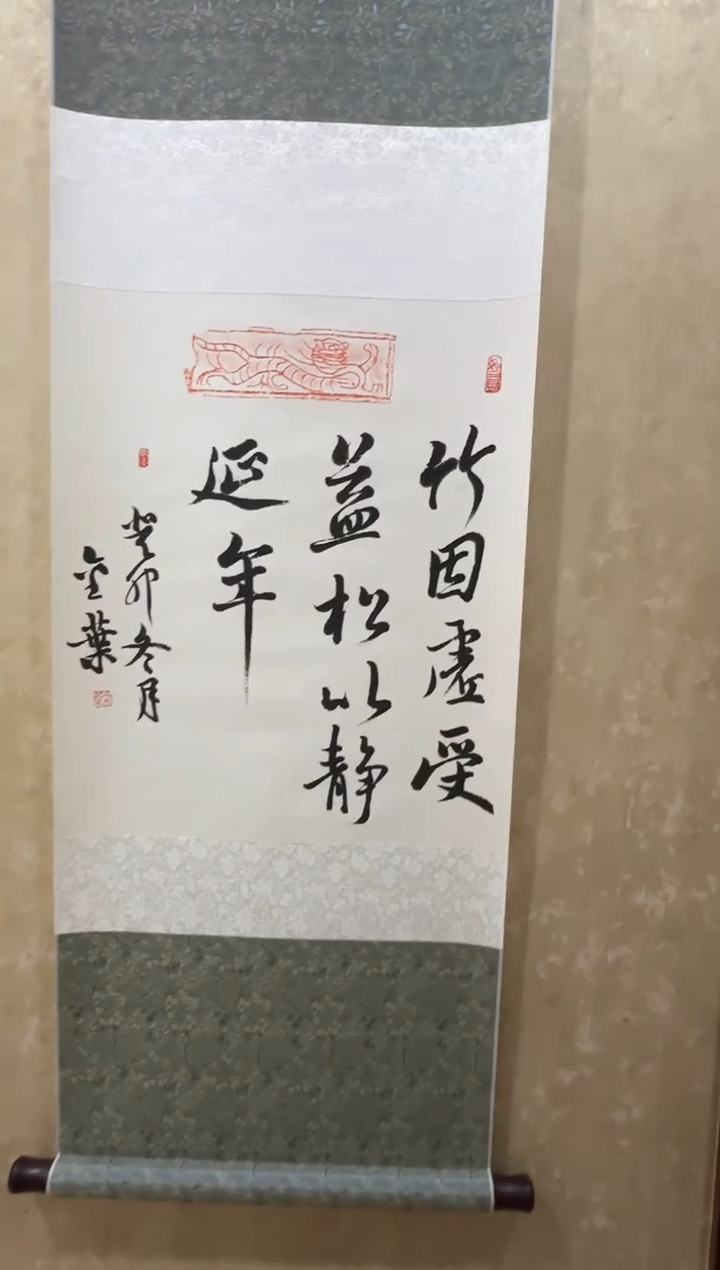 竹因虚受
益松以静
延年
癸卯冬月
金葉